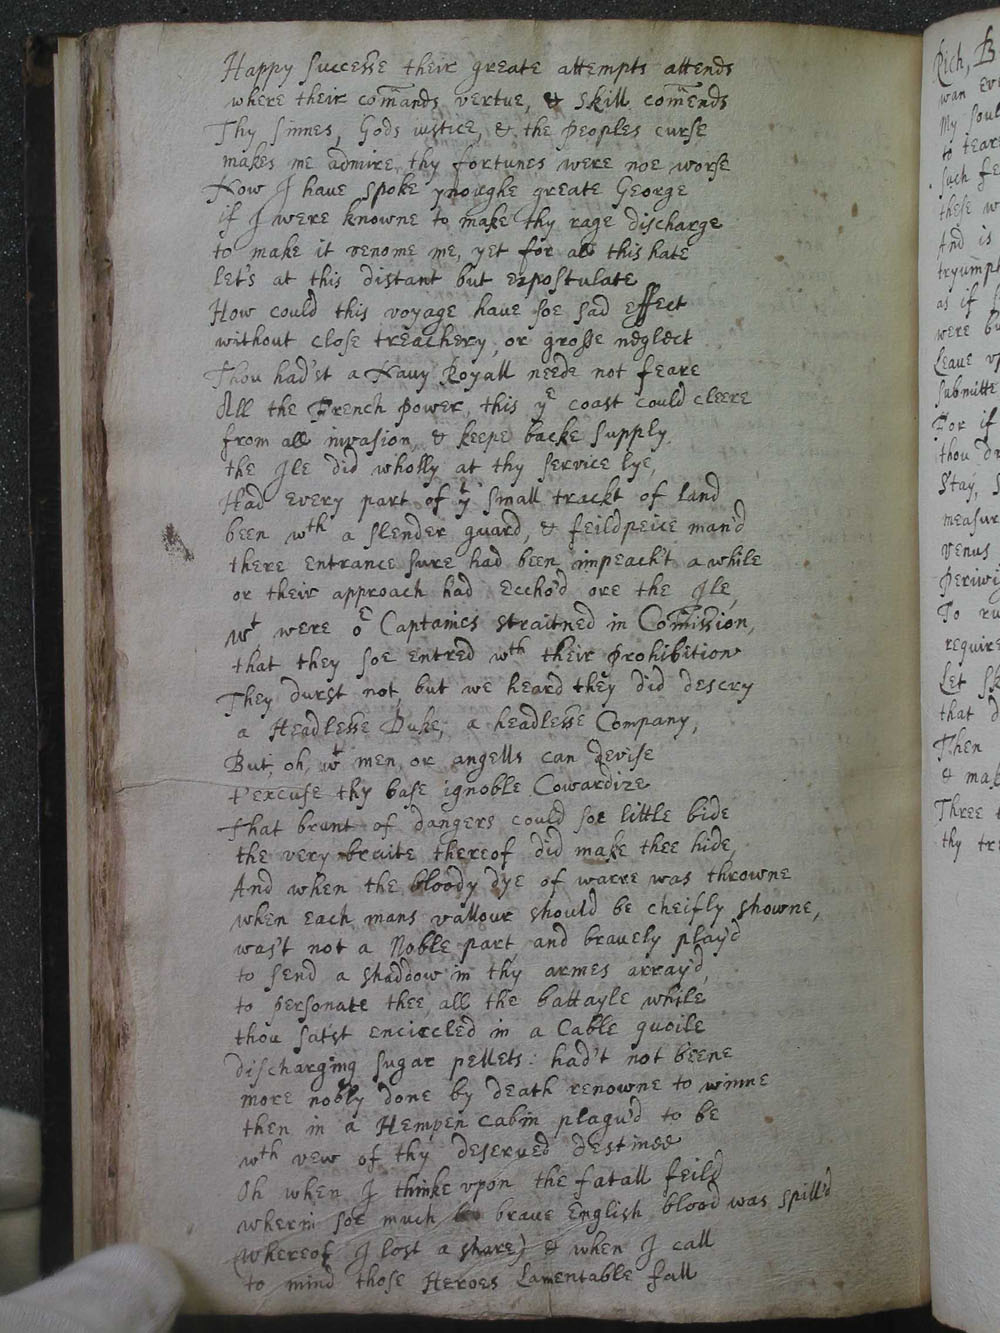 Happy successe their greate attempts attends
where their com̄ands vertue, & skill com̄ends
Thy sinnes, Gods iustice, & the peoples curse
makes me admire thy fortunes were noe worse
Now I have spoke ynoughe greate George
if I were knowne to make thy rage discharge
to make it venome me, yet for all this hate
let's at this distant but expostulate
How could this voyage have soe sad effect
without close treachery, or grosse neglect
Thou had'st a Navy Royall neede not feare
All the French power, this yᵉ coast could cleere
from all invasion, & keepe backe supply
the Ile did wholly at thy service lye,
Had every part of yᵗ small trackt of land
been wᵗʰ a slender guard, & feildpeice man'd
there entrance sure had been impeach't a while
or their approach had eccho'd ore the Ile,
wᵗ were oᵉ Captaines straitned in Com̄ission,
that they soe entred wᵗʰ their prohibition
They durst not, but we heard they did descry
a Headlesse Duke, a headlesse Company,
But, oh, wᵗ men or angells can devise
t'excuse thy base ignoble Cowardize
that brunt of dangers could soe little bide
the very bruite thereof did make thee hide,
And when the bloody dye of warre was throwne
when each mans vallour should be cheifly showne,
was't not a Noble part, and bravely play'd
to send a shaddow in thy armes array'd,
to personate thee, all the battayle while
thou satst encircled in a Cable quoile
discharging sugar pellets: had't not beene
more nobly done by death renowne to winne
then in a Hempen cabin plagu'd to be
wᵗʰ vew of thy deserved destinee
Oh when I thinke vpon the fatall feild
wherin soe much brave English blood was spill'd
(whereof I lost a share) & when I call
to mind those Heroes Lamentable fall
Rich, B
wan eve
My soul
to teare
such fe
these w
And is
tryumph
as if
were bu
Leave vp
submitte
For if
thou dr
Stay, S
measur
venus
Periwi
To ru
require
Let sk
that d
Then
& mak
Three t
thy tre